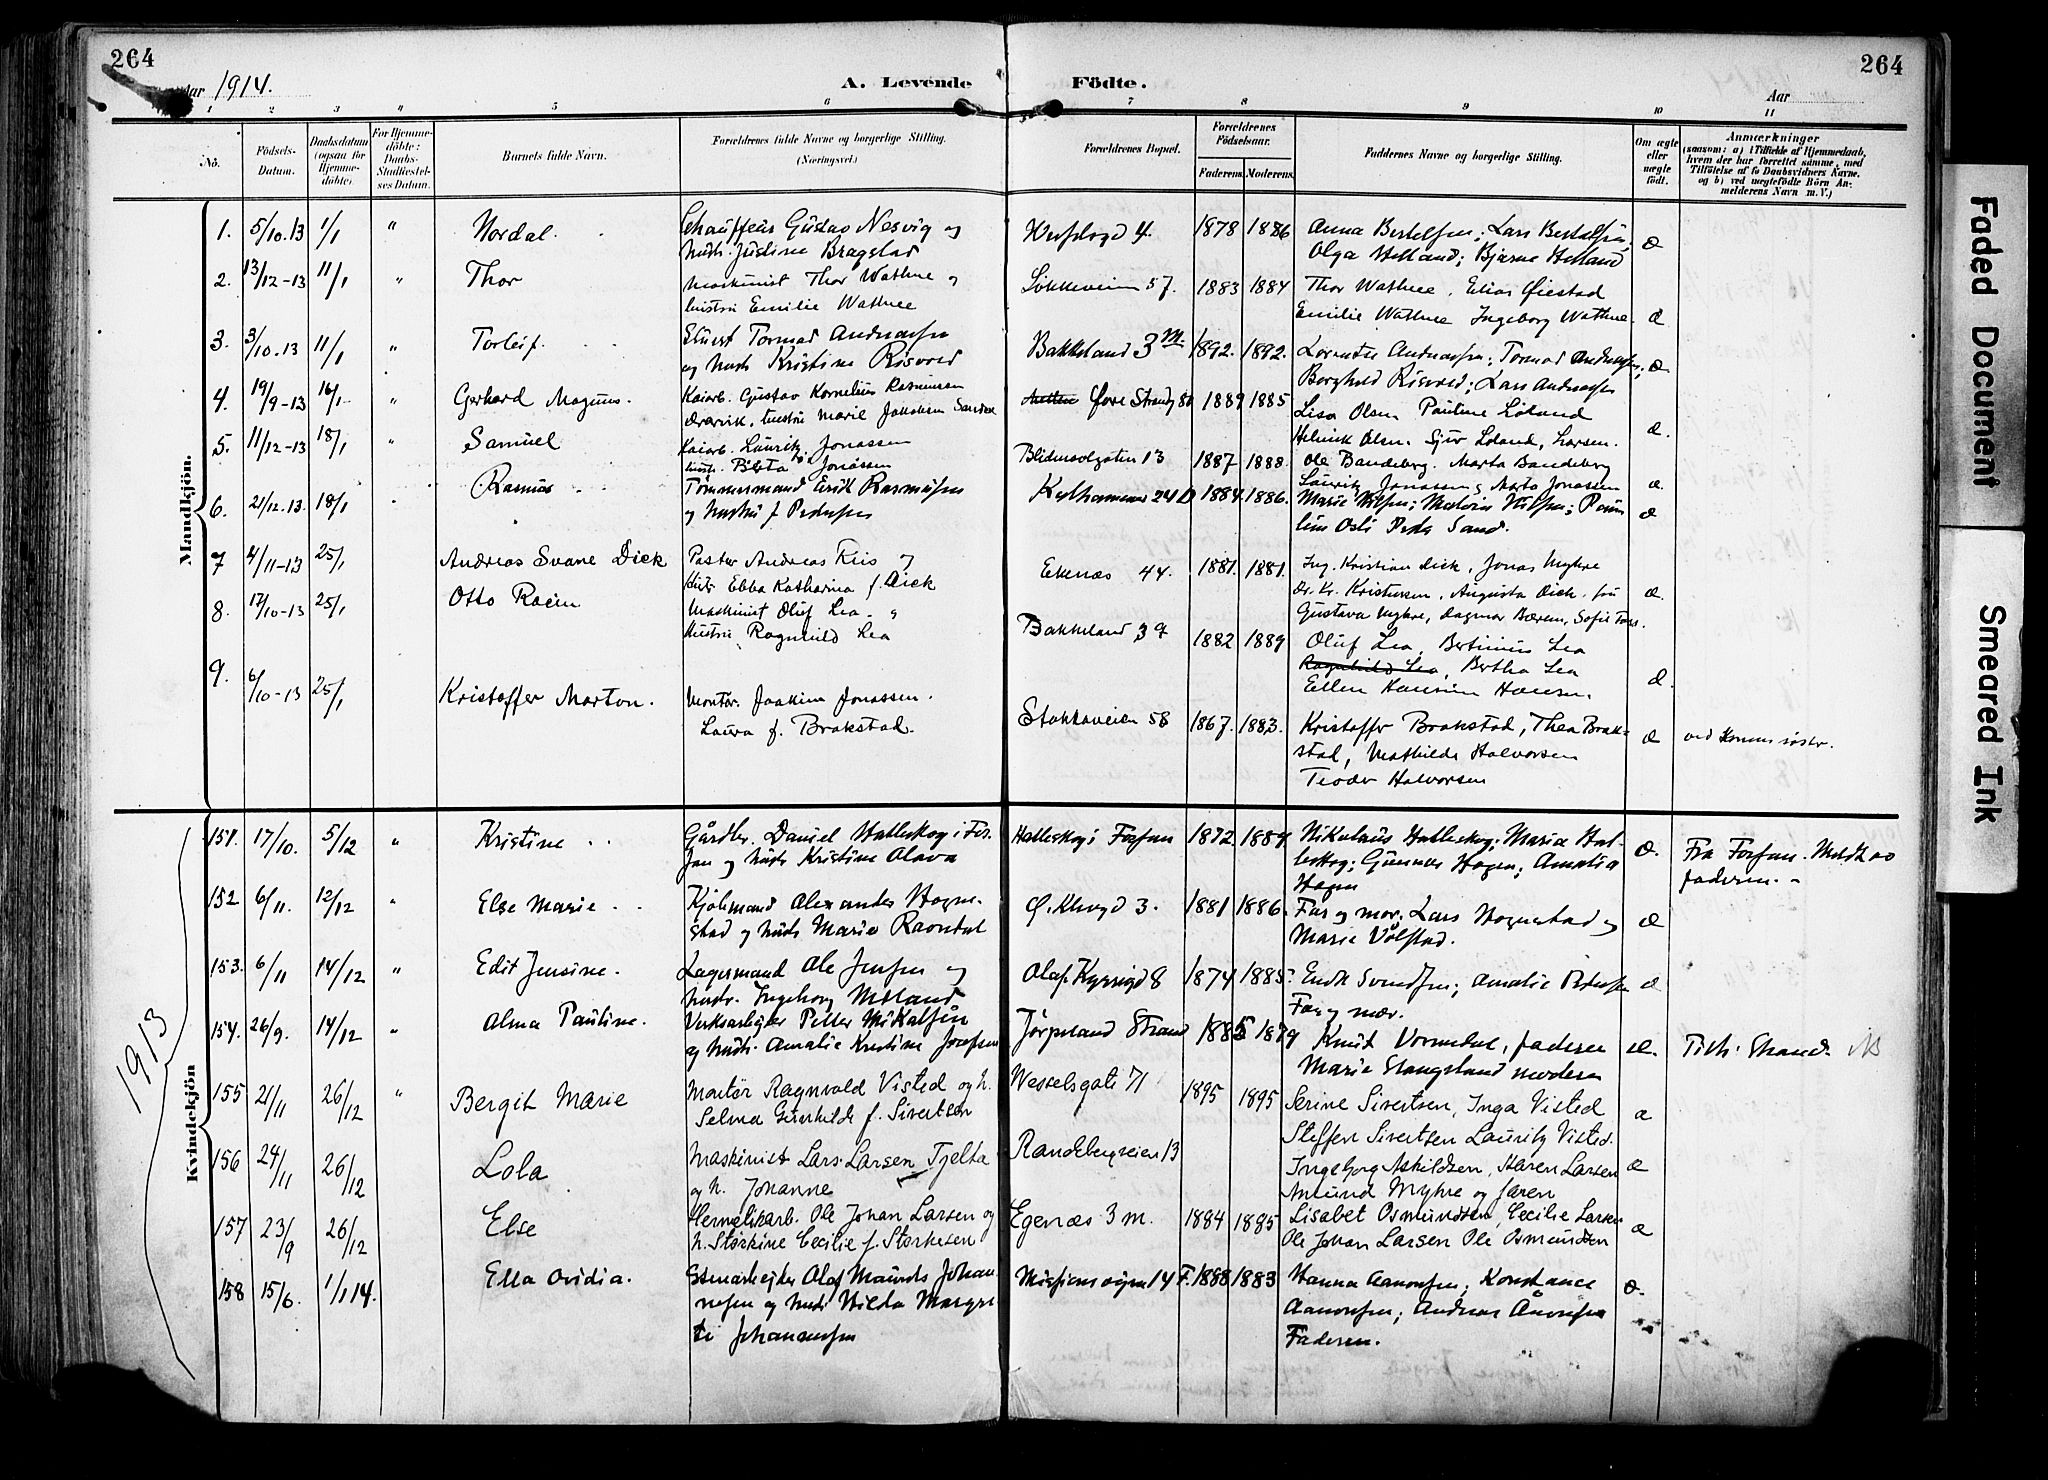 264
264
Aar 1914.
A. Levende Födte.
Aar
1 2 3 4 5 6 7 8 9 10 11
No.
Födsels-Datum.
Daabsdatum (ogsaa for Hjemmedöbte).
For Hjemmedöbte: Daabs-Stadfæstelses Datum.
Barnets fulde Navn.
Forældrenes fulde Navne og borgerlige Stilling. (Næringsvei.)
Forældrenes Bopæl.
Forældrenes Födselsaar.
Faderens. Moderens.
Faddernes Navne og borgerlige Stilling.
Om ægte eller uægte födt.
Anmærkninger
(saasom: a) i Tilfælde af Hjemmedaab, hvem der har forrettet samme, med Tilföielse af to Daabsvidners Navne, og b) ved uægtefödte Börn Anmelderens Navn m. V.)
Mandkjön.
1. 5/10.13 1/1 " Nordal. Chauffeur Gustav Nesvig og 4. 1878 1886 Anna Bertelsen; Lars Bertelsen;
hust. Justine Bragstad Olga Helland; Bjarne Helland æ
2. 13/12-13 11/1 " Thor Maskinist Thor Wathne og Løkkeveien 57. 1883 1884 Thor Wathne, Elias Øiestad
hustru Emilie Wathne Emilie Wathne Ingeborg Wathne. æ
3. 3/10.13 11/1 " Torleif. Tormod Andreasen Bakkeland 3 m. 1892. 1892. Andreasen; Tormod Andreasen;
og hust. Kristine Risvold Borghild Risvold; Lars Andreasen æ
4. 19/9-13 16/1 " Gerhard Magnus. Kaiarb. Gustav Kornelius Rasmussen Øvre Strandg 80 1889 1885 Lisa Olsen Pauline Loland
hustru Marie Jakobsen Henrik Olsen. Sjur Loland, Larsen. æ.
5. 11/12-13 18/1 " Samuel Kaiarb. Lauritz Jonassen Blidensolgaten 13 1887 1888. Ole Bandeberg. Marta Bandeberg
Jonassen Lauritz Jonassen og Marta Jonassen æ.
6. 21/12.13. 18/1 Rasmus Tømmermand Erik Rasmusen 24 D 1884. 1886. Marie Nilsen; Nilsen;
og hustru f Pedersen Peder Sand. æ
7 4/11-13 25/1 Andreas Svane Dick Pastor Andreas Riis og Ekenæs 44. 1881. 1881. Ing. Kristian Dick, Jonas Myhre
Ebba Katharina f. Dick Dr. Kr. Kristensen, Augusta Dick, fru æ.
Gustava Myhre, Dagmar
8. 17/10-13 25/1 Otto Maskinist Oluf Lea. " Bakkeland 39 1882 1889 Oluf Lea, Bertinius Lea
Hustru Ragnhild Lea Ragnhild Lea, Bertha Lea
Ellen Hansen. æ.
9. 6/10-13 25/1 Kristoffer Morton. Montør. Joakim Jonassen. Stokkaveien 58 1867. 1883. Kristoffer Brakstad, Thea Brak-
Laura f. Brakstad. stad, Mathilde Halvorsen æ
Teodor Halvorsen
1913
Kvindekjön
151. 17/10. 5/12 " Kristine Gårdbr. Daniel Halleskog i For- Halleskog i Forsan 1872. 1889 Nikolaus Halleskog; Maria Hal- æ. Fra Forsan.
san og hust. Kristine leskog; Gunnar Hagen; Amalia faderen.
Hagen
152 6/11. 12/12 " Else Marie Alexander Hogne- 3. 1881 1886. Far og mor. Lars Hognestad og æ
stad og hust. Marie Marie Vølstad.
153. 6/11 14/12 " Edit Jensine. Lagermand Ole Jensen og Olaf Kyrresgd 8 1874 1885. Svendsen; Amalie Pedersen æ
hustr. Ingeborg Far og mor.
154. 26/9. 14/12 " Alma Pauline. Verksarbeider Petter Mikalsen Jørpeland Strand 1885 1879 Knut faderen æ. Tilh. Strand.
og hustr. Amalie Kristine Josefsen Marie Stangeland moderen
155 21/11 26/12 " Bergit Marie Montør Ragnvald Visted og h. Wesselsgate 71 1895 1895 Serine Sivertsen, Inga Visted æ
Selma Gunhilde f. Sivertsen Steffen Sivertsen Lauritz Visted.
156 24/11 26/12 Lola Maskinist Lars Larsen Tjelta Randebergveien 13 Ingeborg Askildsen, Karen Larsen æ
og h. Johanne Amund Myhre og faren
157 23/9 26/12 Else Hermetikarb. Ole Johan Larsen og Egenæs 3 m. 1884 1885 Lisabet Osmundsen, Cecilie Larsen æ
h. Størkine Cecilie f. Størkesen Ole Johan Larsen Ole Osmundsen
158 15/6. 1/1 14. Ella Ovidia. Stenarbeider Olaf Johan- 14 F. 1888 1883 Hanna Aanonsen; Konstance æ.
nesen og hust. Hilda Margre- Aanonsen; Andreas Aanonsen
te Johannessen Faderen.
Faded Document
Smeared Ink